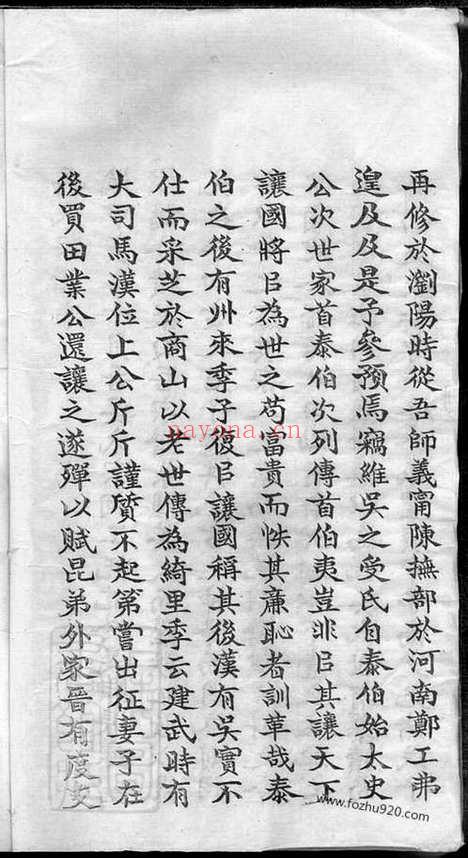 再修於瀏陽時從吾師義甯陳撫部於河南鄭工弗
遑及及是予參預焉竊維吳之受氏自泰伯始太史
公次世家首泰伯次列傳首伯夷豈非㠯其讓天下
讓國將㠯為世之苟富貴而怢其廉恥者訓革哉泰
伯之後有州來季子後㠯讓國稱其後漢有吳實不
仕而采芝於商山以老世傳為綺里季云建武時有
大司馬漢位上公斤斤謹質不起第嘗出征妻子在
後買田業公還讓之遂殫以賦昆弟外家晉有度支
nayona.cn
www.fozhu920.com